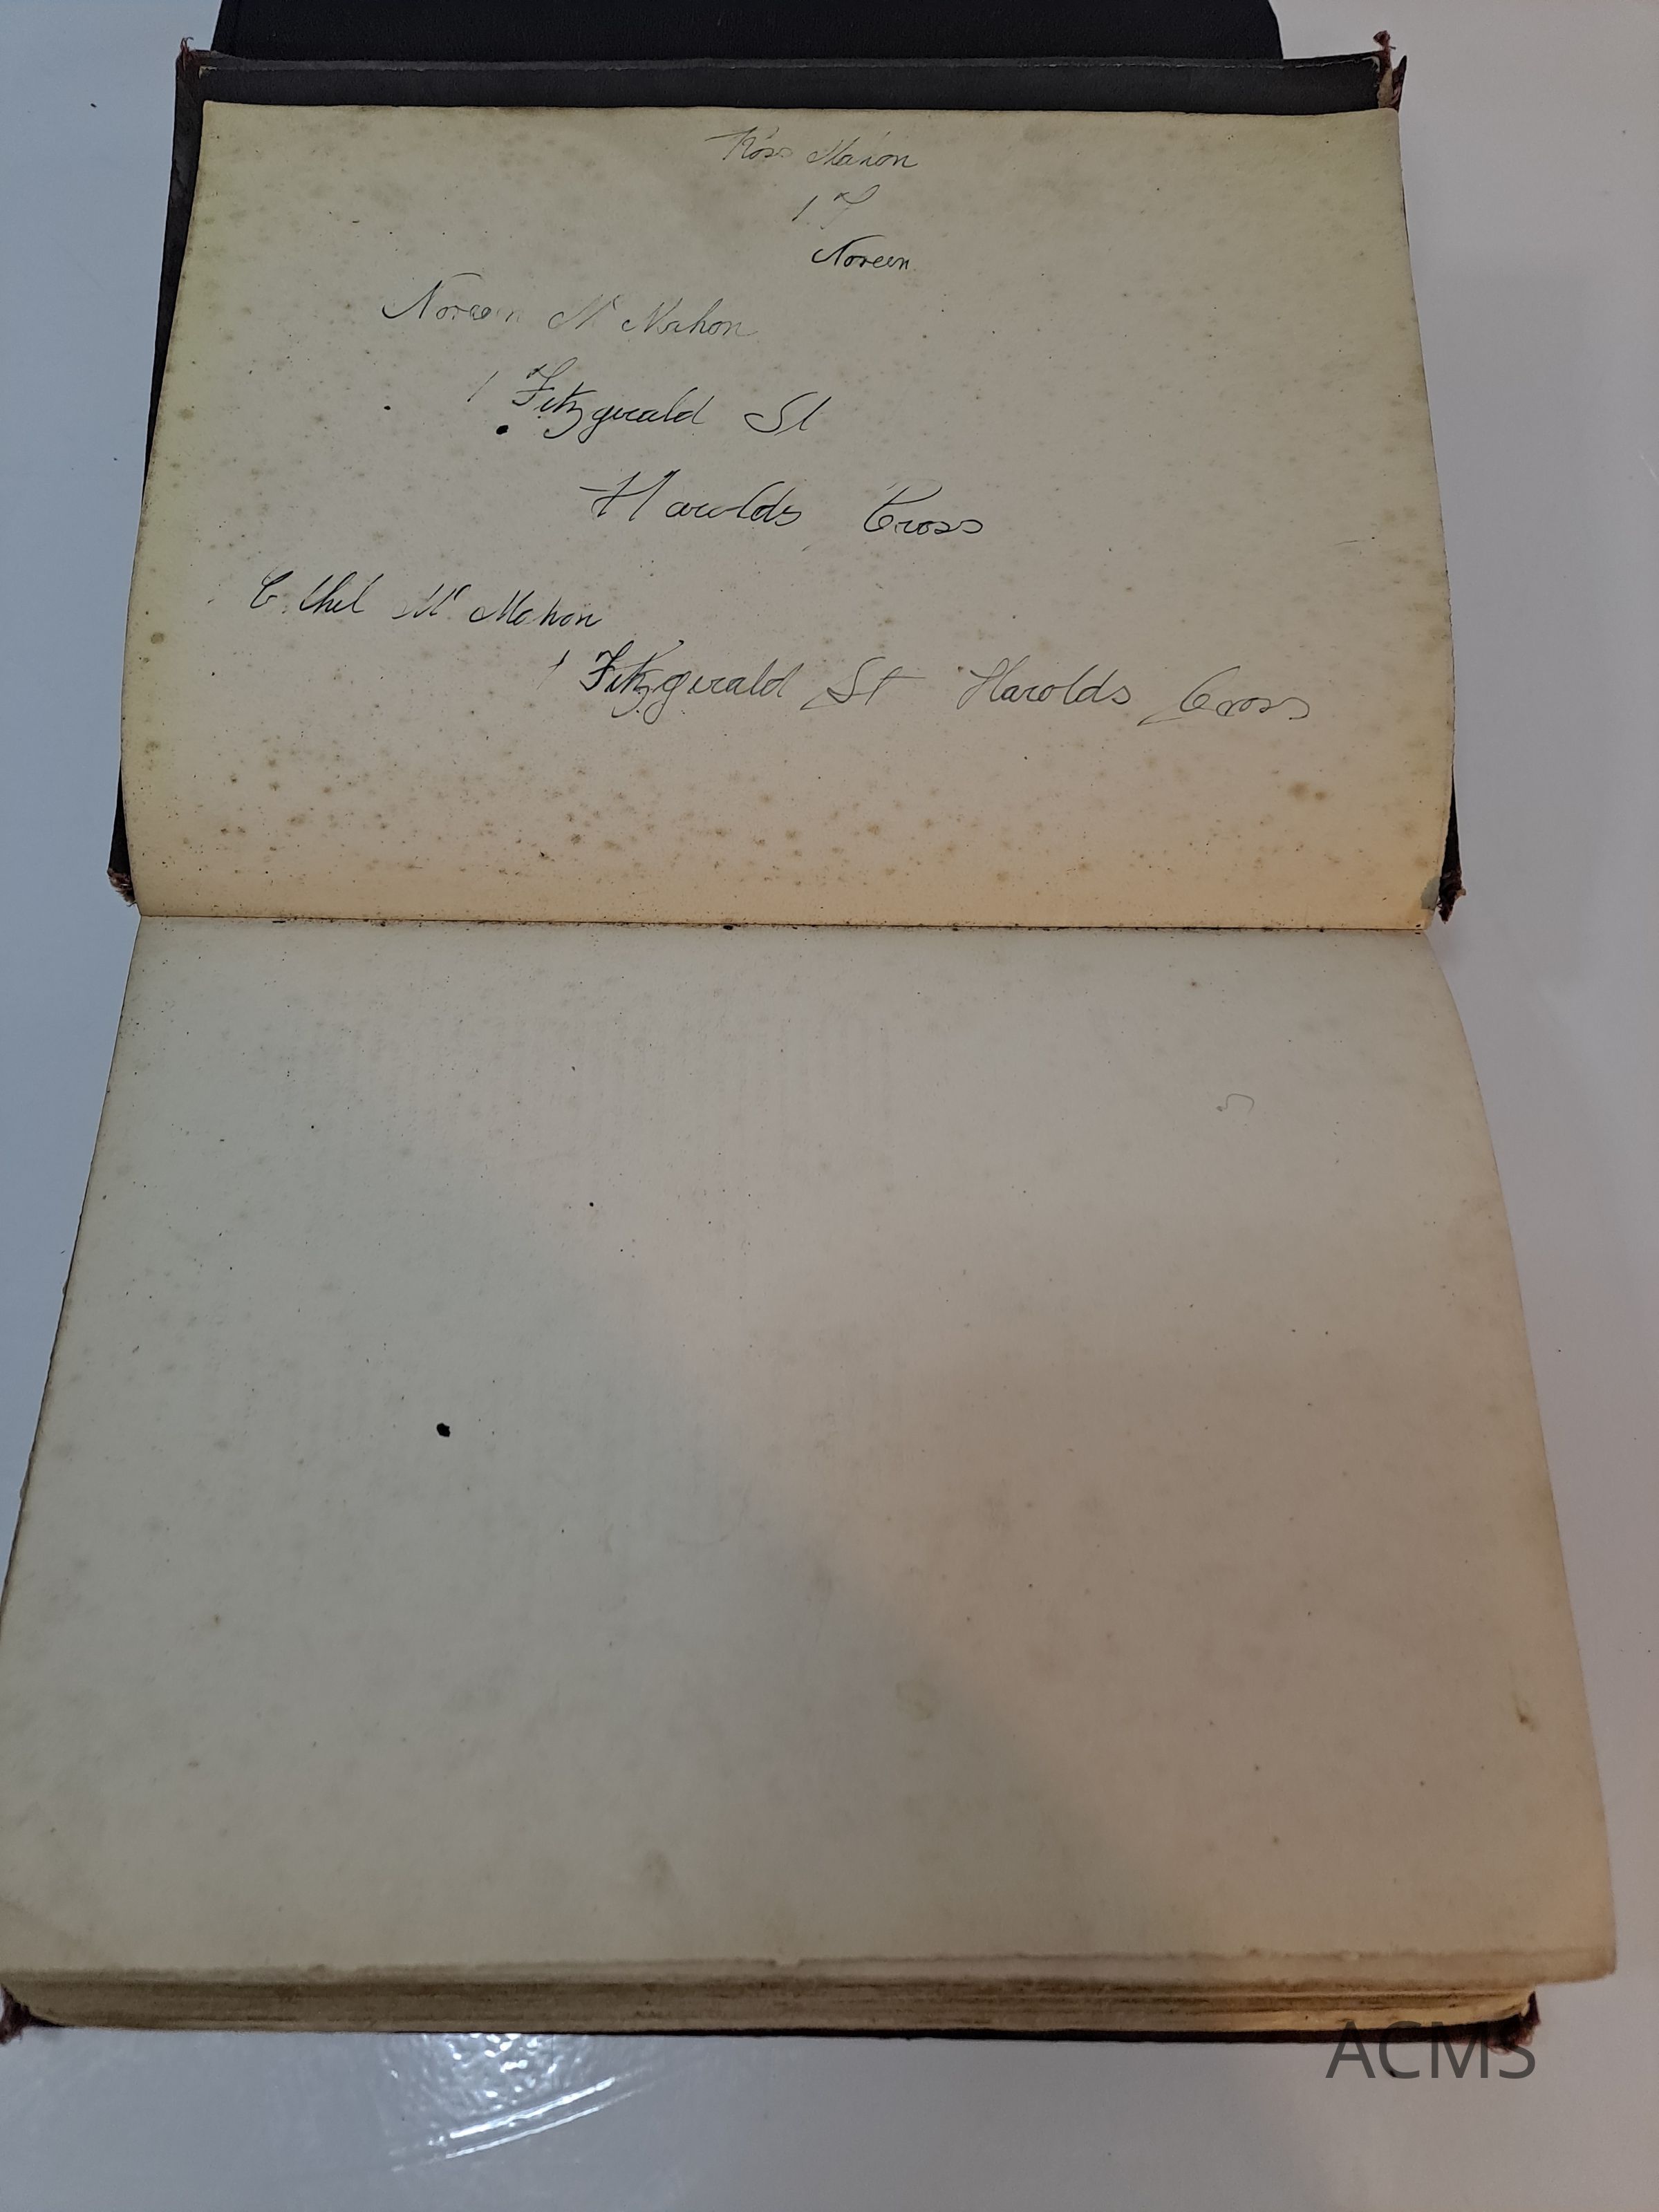 Ross Marion
1 F
Noreen
Noreen Mc Mahon
1 Fitzgerald St
Harolds Cross
Ethel Mc Mahon
1 Fitzgerald St Harolds Cross
ACMS